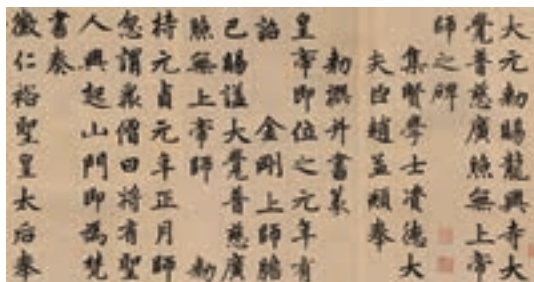 大元勅賜龍興寺大
覺普慈廣照無上帝
師之碑
集賢學士資德大
夫臣趙孟頫奉
勅撰并書篆
皇帝即位之元年有
詔 金剛上師膽
巴賜謚大覺普慈廣
照無上帝師 勅
持元貞元年正月師
忽謂衆僧曰將有聖
人興起山門即為梵
書奏
徽仁裕聖皇太后奉